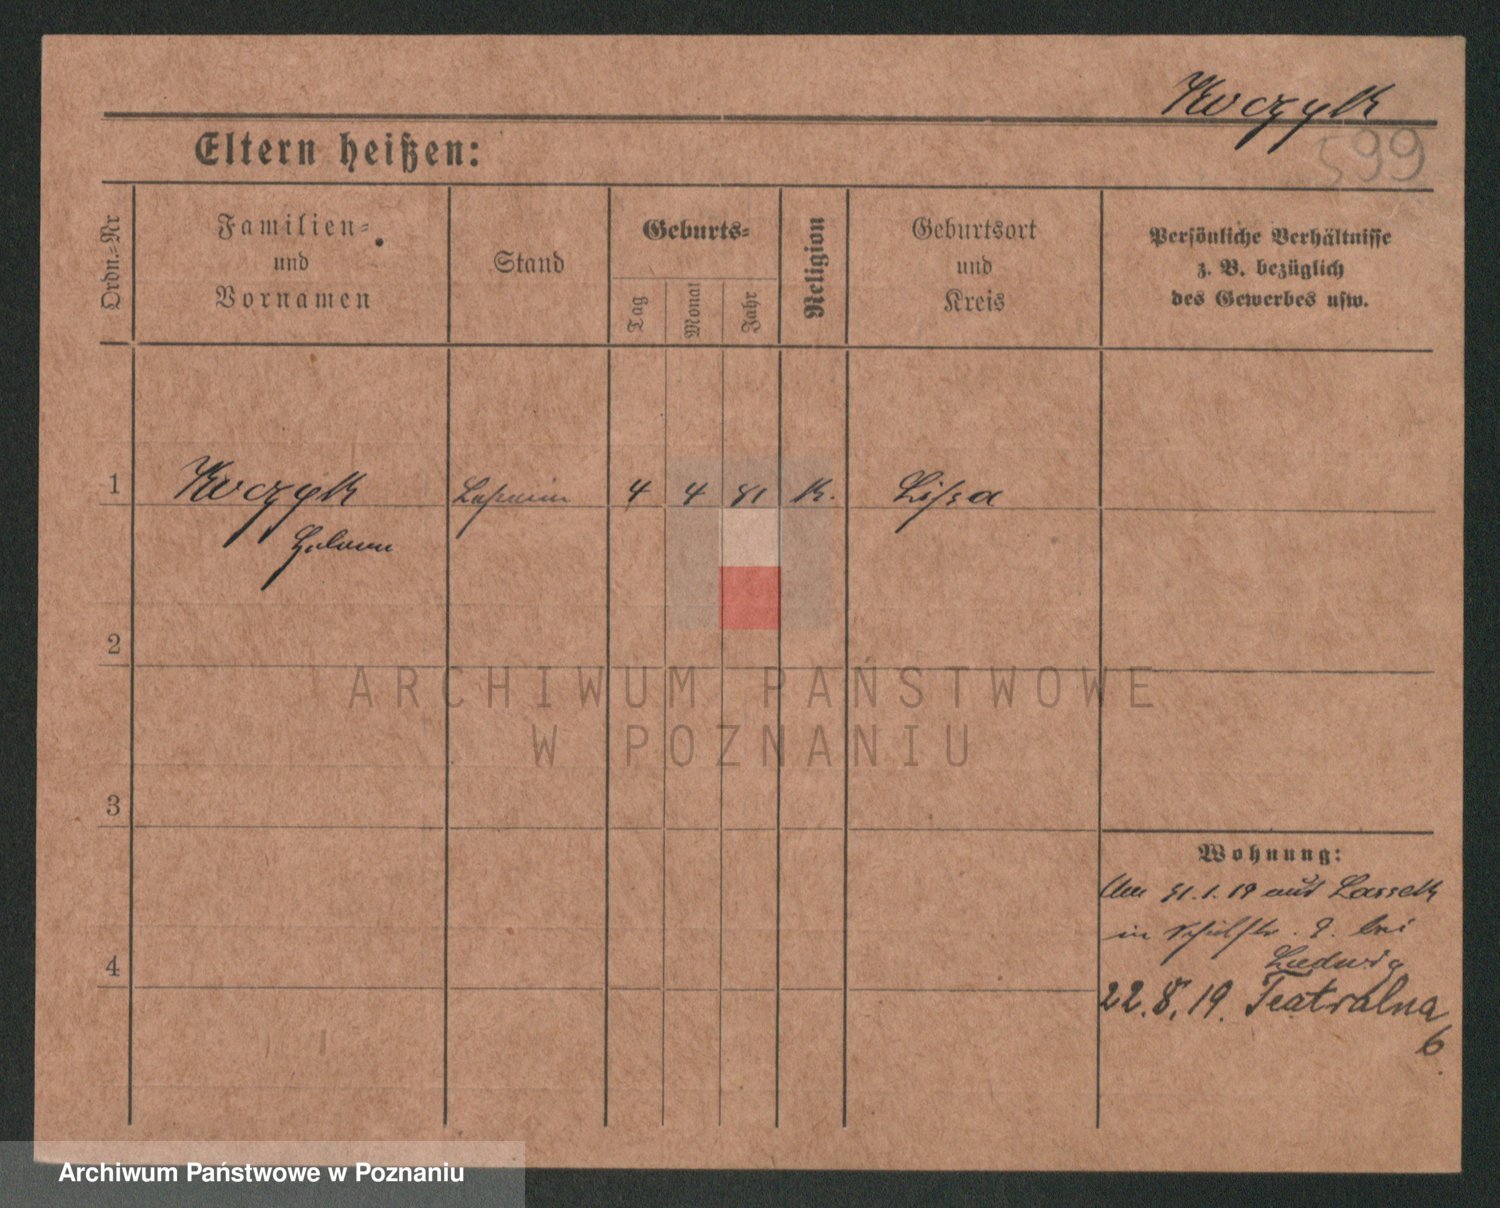 Koczyk
599
Eltern heißen:
Ordn.=Nr
Familien=
und
Vornamen
Stand
Geburts=
Tag
Monat
Jahr
Religion
Geburtsort
und
Kreis
Persönliche Verhältnisse
z. B. bezüglich
des Gewerbes usw.
1 Koczyk 4 4 81 K. Lissa
2
3
4
ARCHIWUM PAŃSTWOWE
W POZNANIU
Wohnung:
1. 19 aus
in 9. bei
Ludwig
22.8.19. Teatralna
6
Archiwum Państwowe w Poznaniu